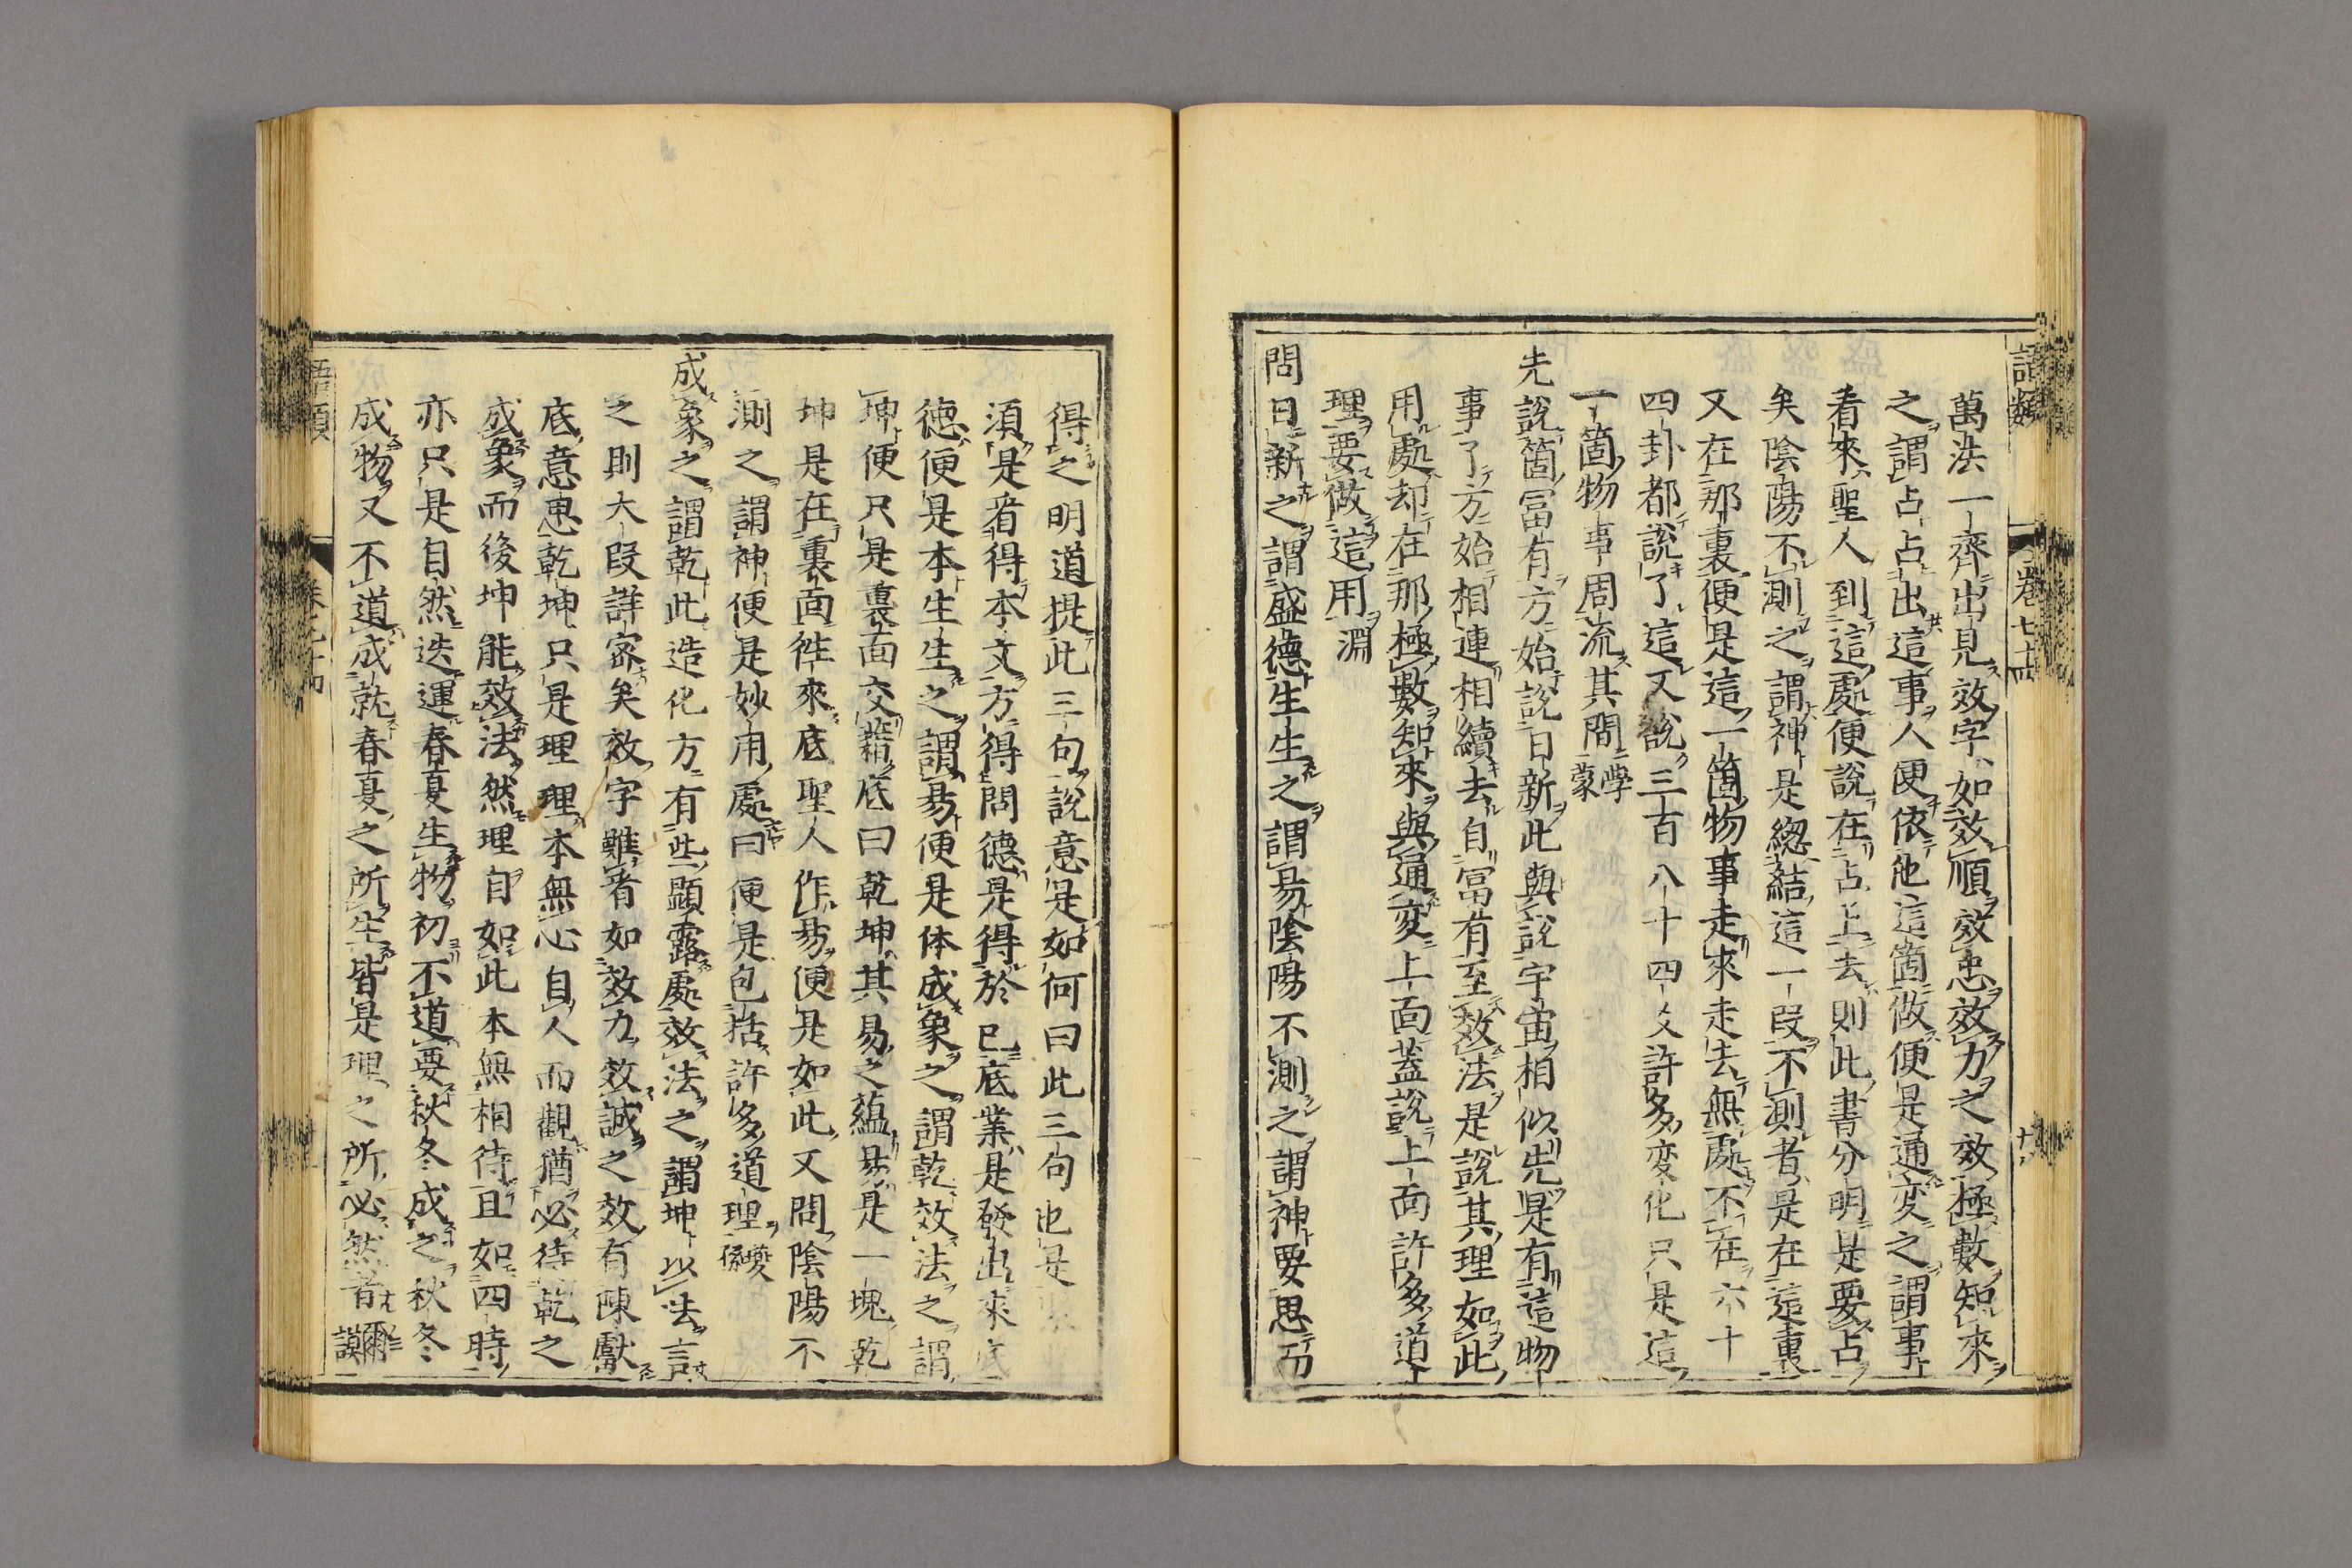 語類
卷七十四
萬法一齊出見效字如效順效忠效力之效極數知來
之謂占占出這事人便依他這箇做便是通変之謂事
看來聖人到這處便說在占上去則此書分明是要占
矣陰陽不測之謂神是緫結這一段不測者是在這裏
又在那裏便是這一箇物事走來走去無處不在六十
四卦都說了這又說三百八十四爻許多変化只是這
一箇物事周流其間 學蒙
先說箇冨有方始說日新此與說宇宙相似先是有這物
事了方始相連相續去自冨有至效法是說其理如此
用處却在那極數知來與通変上面蓋說上面許多道
理要做這用 淵
問日新之謂盛德生生之謂易陰陽不測之謂神要思而
得之明道提此三句說意是如何曰此三句也是
須是看得本文方得問德是得於己底業是發出來底
德便是本生生之謂易便是体成象之謂乾效法之謂
坤便只是裏面交錯底曰乾坤其易之蘊易是一塊乾
坤是在裏面往來底聖人作易便是如此又問陰陽不
測之謂神便是妙用處曰便是包括許多道理 夔孫
成象之謂乾此造化方有些顯露處效法之謂坤以法言
之則大段詳密矣效字難看如效力效誠之效有陳獻
底意思乾坤只是理理本無心自人而觀猶必待乾之
成象而後坤能效法然理自如此本無相待且如四時
亦只是自然迭運春夏生物初不道要秋冬成之秋冬
成物又不道成就春夏之所生皆是理之所必然者 謨
語類